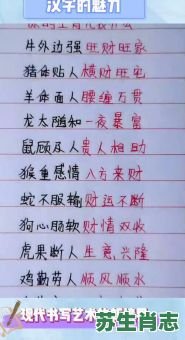 汉字的魅力
牛外边强旺财旺家
猪体贴人横财旺宅
羊体面人腰缠万贯
龙太随和一夜暴富
鼠顾及人贵人相助
猴重感情八方来财
蛇不服输财运不断
狗心肠软财情双收
虎果断人生意兴隆
鸡勤劳人顺风顺水
现代书写艺术
苏生肖志